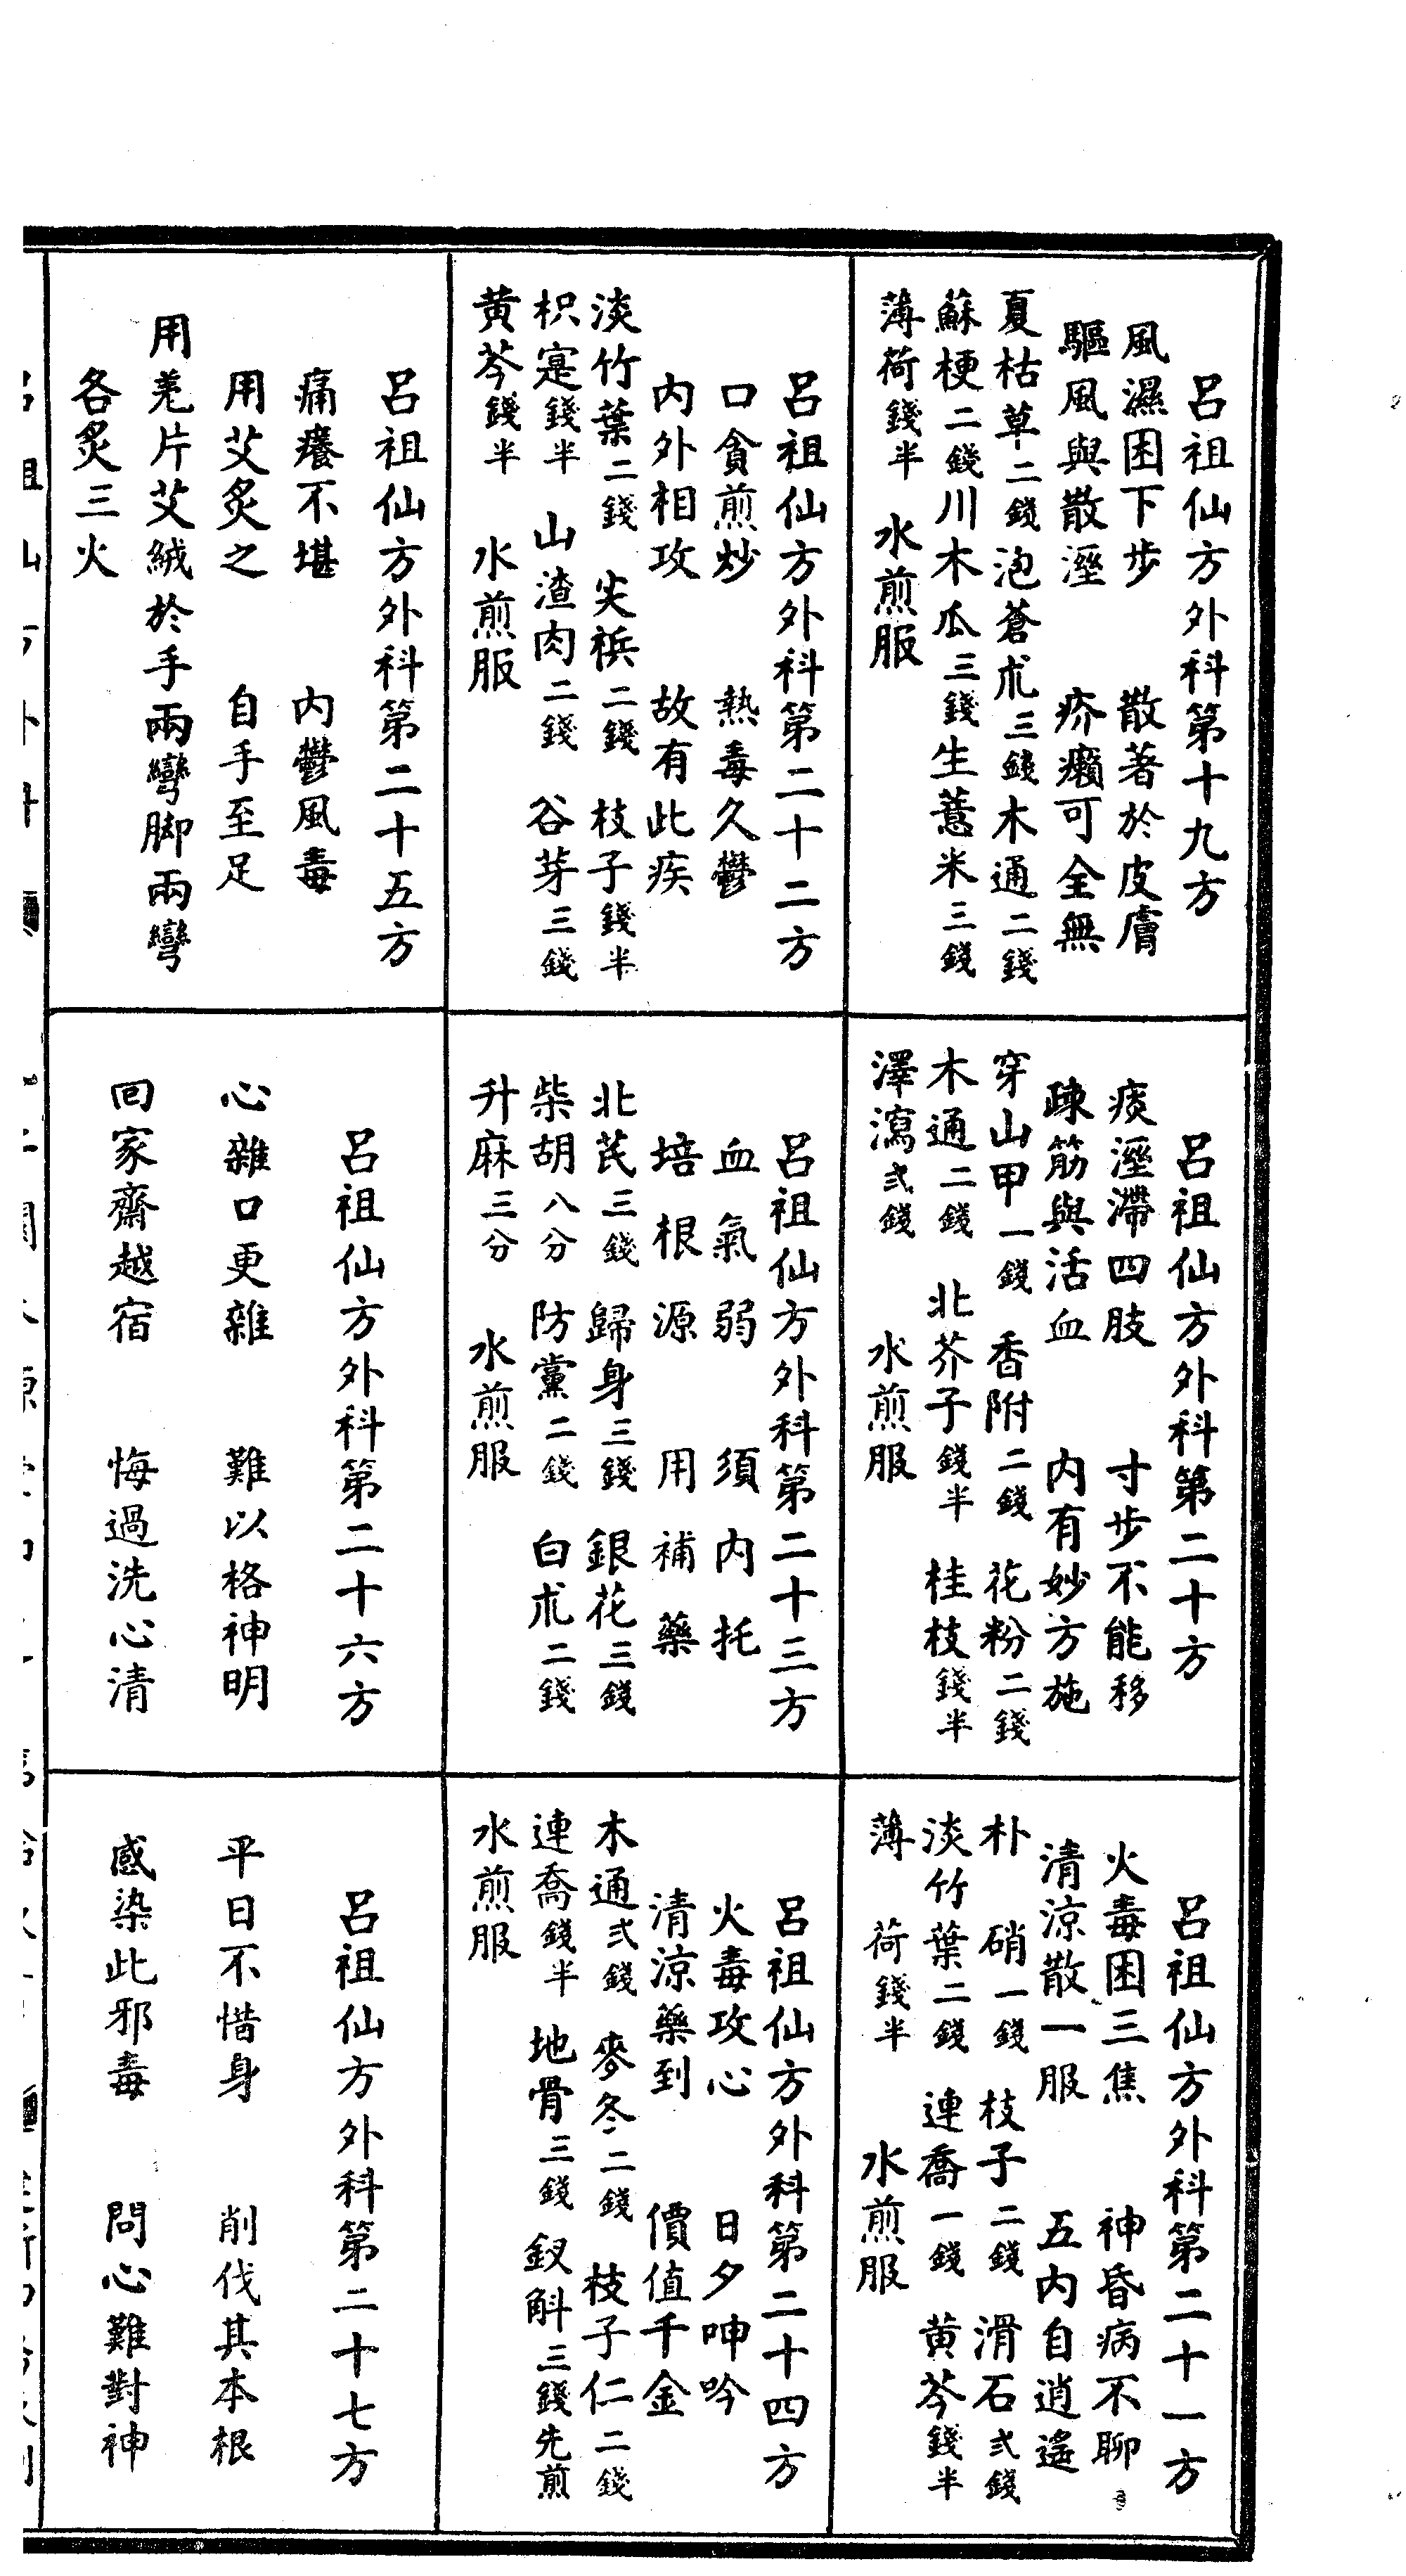 呂祖仙方外科第十九方
風濕困下步　散著於皮膚
驅風與散溼　疥癩可全無
夏枯草二錢 泡蒼朮三錢 木通二錢
蘇梗二錢 川木瓜三錢 生薏米三錢
薄荷錢半　水煎服
呂祖仙方外科第二十方
痰溼滯四肢　寸步不能移
疎筋與活血　內有妙方施
穿山甲一錢　香附二錢　花粉二錢
木通二錢　北芥子錢半　桂枝錢半
澤瀉弍錢　水煎服
呂祖仙方外科第二十一方
火毒困三焦　神昏病不聊
清涼散一服　五內自逍遙
朴硝一錢　枝子二錢　滑石弍錢
淡竹葉二錢　連喬一錢　黄芩錢半
薄荷錢半　水煎服
呂祖仙方外科第二十二方
口貪煎炒　熱毒久鬱
內外相攻　故有此疾
淡竹葉二錢　尖梹二錢　枝子錢半
枳寔錢半　山渣肉二錢　谷芽三錢
黄芩錢半　水煎服
呂祖仙方外科第二十三方
血氣弱　須內托
培根源　用補藥
北芪三錢　歸身三錢　銀花三錢
柴胡八分　防黨二錢　白朮二錢
升麻三分　水煎服
呂祖仙方外科第二十四方
火毒攻心　日夕呻吟
清涼藥到　價值千金
木通弍錢　麥冬二錢　枝子仁二錢
連喬錢半　地骨三錢　釵斛三錢先煎
水煎服
呂祖仙方外科第二十五方
痛癢不堪　內鬱風毒
用艾炙之　自手至足
用羌片艾絨於手兩彎脚兩彎
各炙三火
呂祖仙方外科第二十六方
心雜口更雜　難以格神明
回家齋越宿　悔過洗心清
呂祖仙方外科第二十七方
平日不惜身　削伐其本根
感染此邪毒　問心難對神